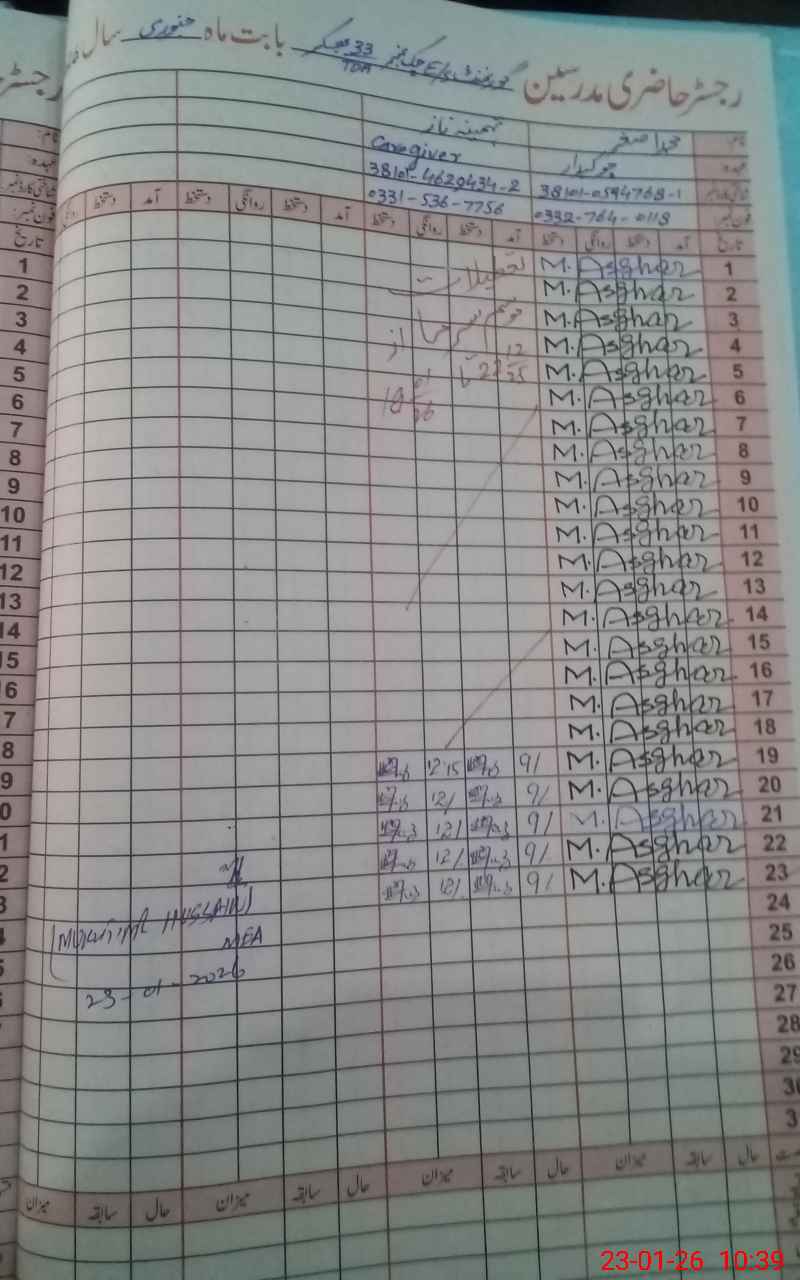 رجسٹر حاضری مدرسین گورنمنٹ E/S چک نمبر 33 TDA بھکر بابت ماہ جنوری سال
نام:
محمد اصغر
تہمینہ ناز
عہدہ:
چوکیدار
Caregiver
38101-0594768-1
38101-4620434-2
فون نمبر:
0332-764-0118
0331-536-7756
تاریخ آمد دستخط روانگی دستخط آمد دستخط روانگی دستخط آمد دستخط روانگی دستخط آمد دستخط روانگی
1 M. Asghar تعطیلات
2 M. Asghar
3 M. Asghar موسم سرما از
4 M. Asghar
5 M. Asghar
6 M. Asghar
7 M. Asghar
8 M. Asghar
9 M. Asghar
10 M. Asghar
11 M. Asghar
12 M. Asghar
13 M. Asghar
14 M. Asghar
15 M. Asghar
16 M. Asghar
17 M. Asghar
18 M. Asghar
19 M. Asghar 9/ 12:15
20 M. Asghar 9/ 12/
21 M. Asghar 9/ 12/
22 M. Asghar 9/ 12/
23 M. Asghar 9/ 12/
24
25
26
27
28
29
30
HUSSAIN)
MEA
23-01-2026
حال سابقہ میزان حال سابقہ میزان حال سابقہ میزان حال سابقہ میزان
23-01-26 10:39